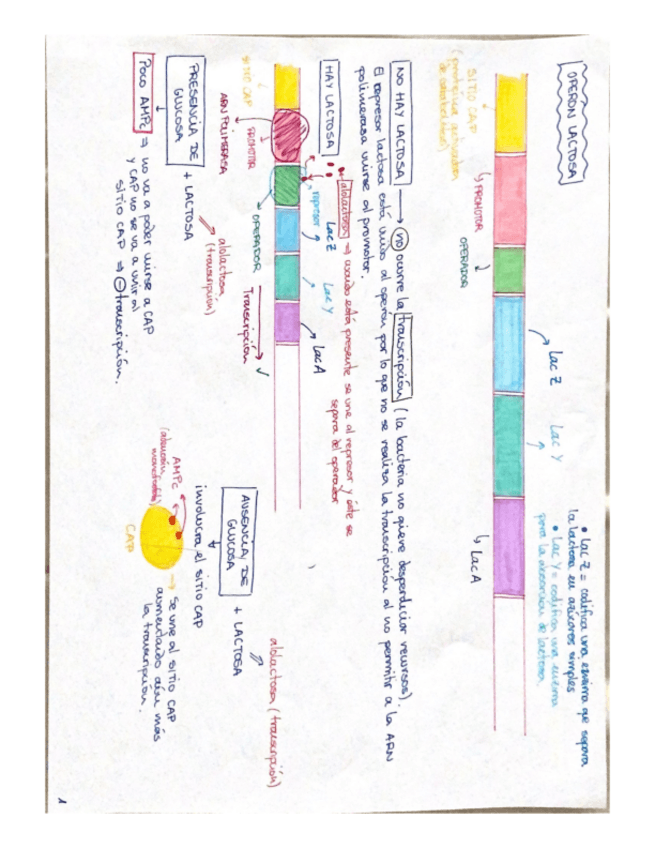 OPERÓN LACTOSA
SITIO CAP
(proteína activadora
de catabolitos)
PROMOTOR
OPERADOR
Lac Z
Lac Y
Lac A
• Lac Z = codifica una enzima que separa
la lactosa en azúcares simples
• Lac Y = codifica una enzima
para la absorción de lactosa.
NO HAY LACTOSA → NO ocurre la transcripción (la bacteria no quiere desperdiciar recursos).
El represor lactosa está unido al operón por lo que no se realiza la transcripción al no permitir a la ARN
polimerasa unirse al promotor.
HAY LACTOSA
alolactosa → cuando está presente se une al represor y éste se
separa del operador
represor
Lac Z
Lac Y
Lac A
SITIO CAP
PROMOTOR
ARN POLIMERASA
OPERADOR
Transcripción ✓
PRESENCIA DE
GLUCOSA + LACTOSA
alolactosa
(transcripción)
POCO AMPc ⇒ no va a poder unirse a CAP
y CAP no se va a unir al
SITIO CAP ⇒ ⊖ transcripción.
AUSENCIA DE
GLUCOSA + LACTOSA
alolactosa (transcripción)
involucra el SITIO CAP
AMPc
CAP
→ Se une al SITIO CAP
aumentando aún más
la transcripción.
1